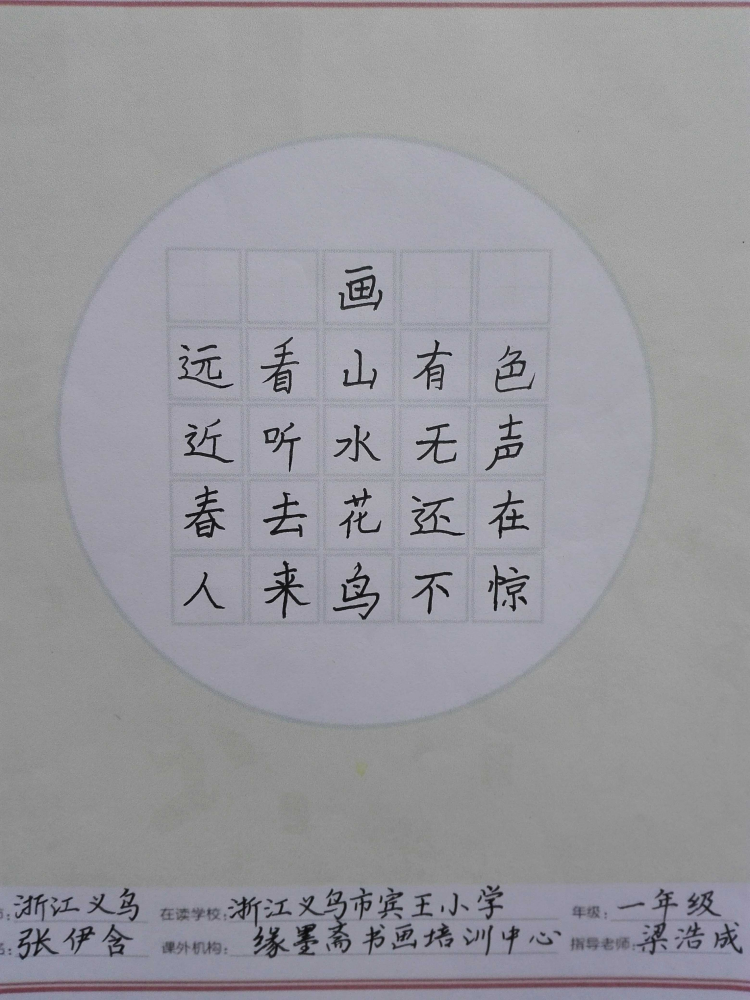 画
远看山有色
近听水无声
春去花还在
人来鸟不惊
:浙江义乌 在读学校:浙江义乌市宾王小学 年级:一年级
:张伊含 课外机构: 缘墨斋书画培训中心 指导老师:梁浩成